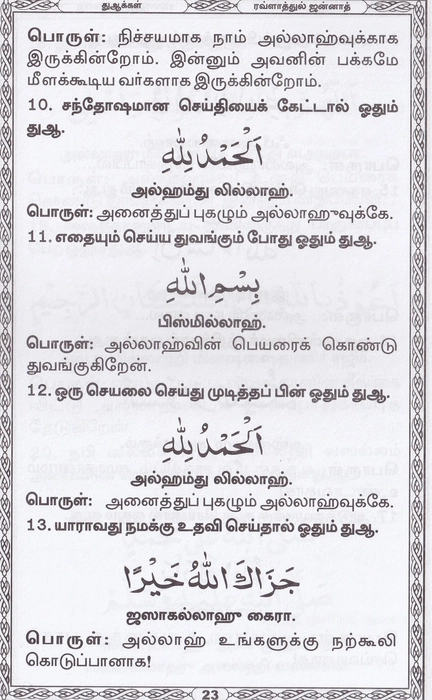 துஆக்கள்
ரவ்ளாத்துல் ஜன்னாத்
பொருள்: நிச்சயமாக நாம் அல்லாஹ்வுக்காக
இருக்கின்றோம். இன்னும் அவனின் பக்கமே
மீளக்கூடிய வர்களாக இருக்கின்றோம்.
10. சந்தோஷமான செய்தியைக் கேட்டால் ஓதும்
துஆ.
اَلْحَمْدُ لِلّٰهِ
அல்ஹம்து லில்லாஹ்.
பொருள்: அனைத்துப் புகழும் அல்லாஹுவுக்கே.
11. எதையும் செய்ய துவங்கும் போது ஓதும் துஆ.
بِسْمِ اللّٰهِ
பிஸ்மில்லாஹ்.
பொருள்: அல்லாஹ்வின் பெயரைக் கொண்டு
துவங்குகிறேன்.
12. ஒரு செயலை செய்து முடித்தப் பின் ஓதும் துஆ.
اَلْحَمْدُ لِلّٰهِ
அல்ஹம்து லில்லாஹ்.
பொருள்: அனைத்துப் புகழும் அல்லாஹ்வுக்கே.
13. யாராவது நமக்கு உதவி செய்தால் ஓதும் துஆ.
جَزَاكَ اللّٰهُ خَيْرًا
ஜஸாகல்லாஹு கைரா.
பொருள்: அல்லாஹ் உங்களுக்கு நற்கூலி
கொடுப்பானாக!
23